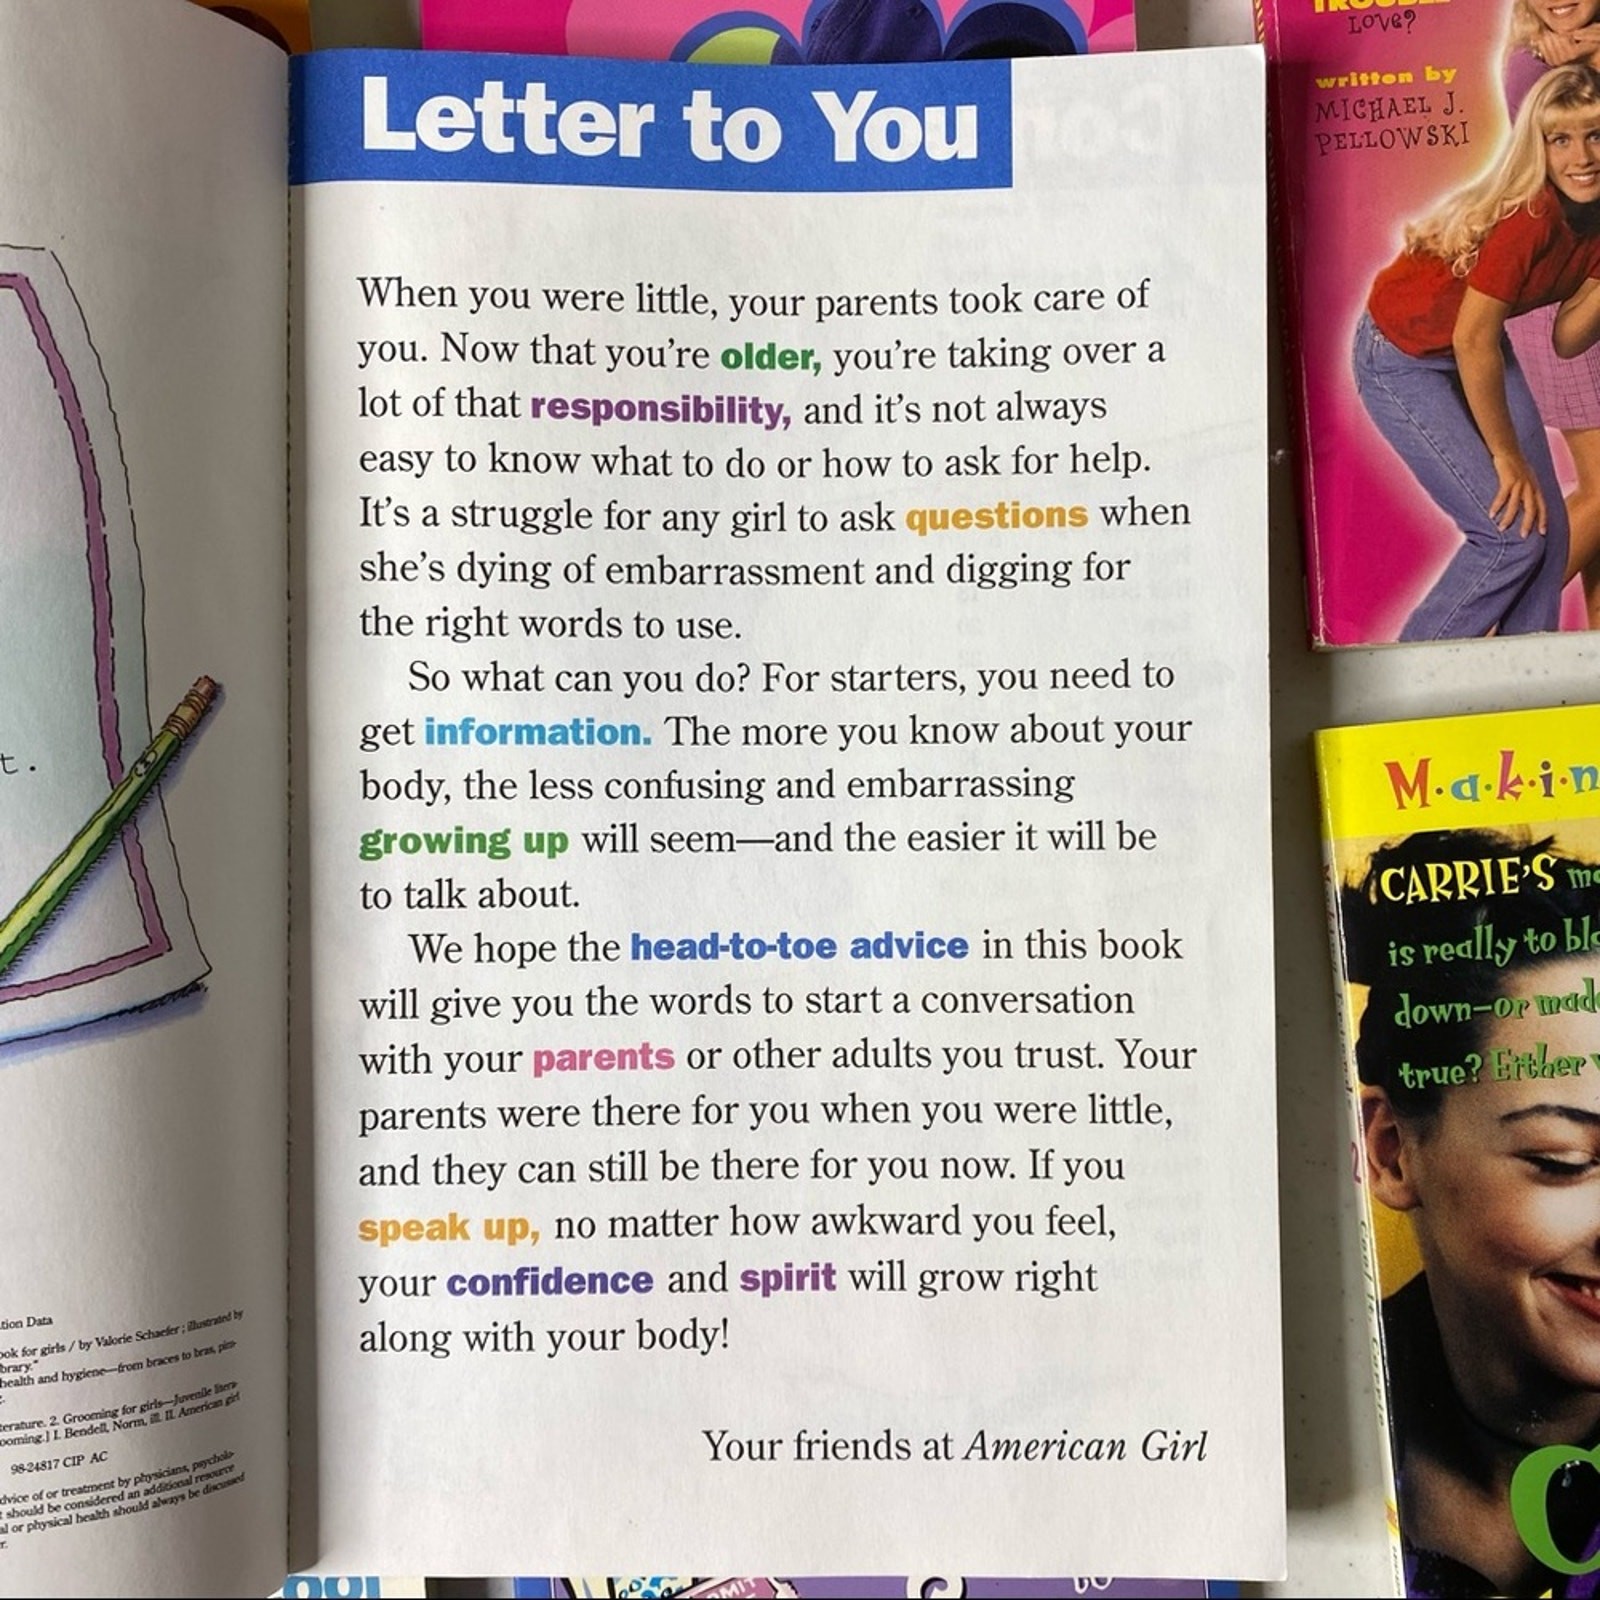 Letter to You
When you were little, your parents took care of
you. Now that you're older, you're taking over a
lot of that responsibility, and it's not always
easy to know what to do or how to ask for help.
It's a struggle for any girl to ask questions when
she's dying of embarrassment and digging for
the right words to use.
So what can you do? For starters, you need to
get information. The more you know about your
body, the less confusing and embarrassing
growing up will seem—and the easier it will be
to talk about.
We hope the head-to-toe advice in this book
will give you the words to start a conversation
with your parents or other adults you trust. Your
parents were there for you when you were little,
and they can still be there for you now. If you
speak up, no matter how awkward you feel,
your confidence and spirit will grow right
along with your body!
Your friends at American Girl
t.
tion Data
ook for girls / by Valorie Schaefer ; illustrated by
brary."
health and hygiene—from braces to bras, pim-
terature. 2. Grooming for girls—Juvenile litera-
ooming.] I. Bendell, Norm, ill. II. American girl
98-24817 CIP AC
dvice of or treatment by physicians, psycholo-
t should be considered an additional resource
al or physical health should always be discussed
r.
TROUBLE
LOVE?
written by
MICHAEL J.
PELLOWSKI
M·a·k·i·n
CARRIE'S
is really to
down—or
true? Either